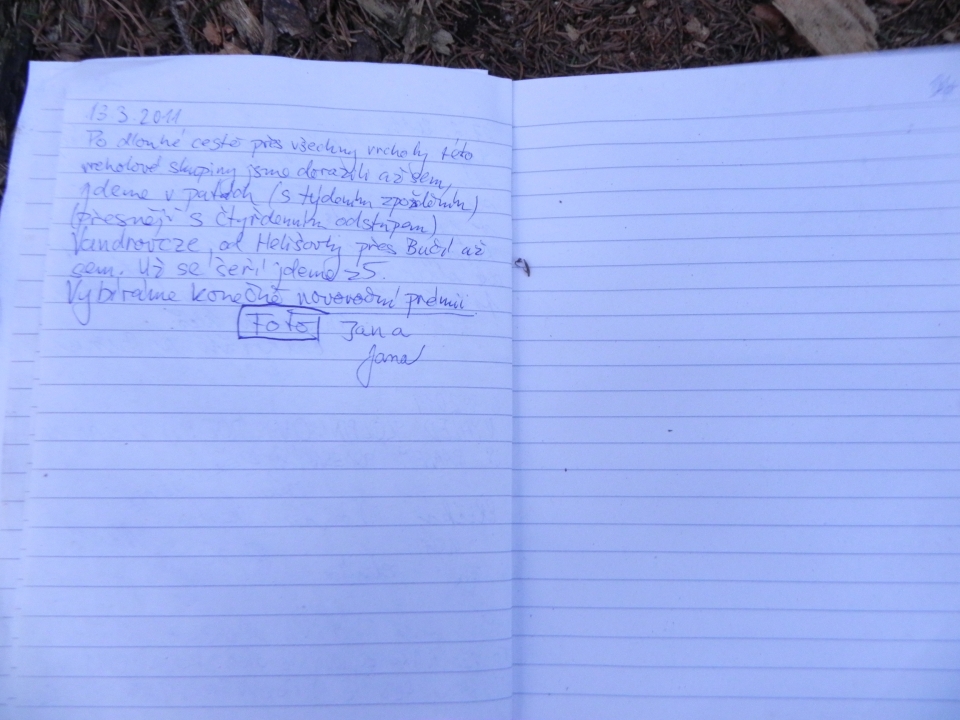 13.3.2011
Po dlouhé cestě přes všechny vrcholy této
vrcholové skupiny jsme dorazili až sem,
jdeme v patách (s týdenním zpožděním)
(přesněji s čtyřdenním odstupem)
Vandrovcze, od Helišovky přes Bučí až
sem. Už se šeří jdeme
Vybíráme konečně novoroční prémii
Foto Jana
Jana